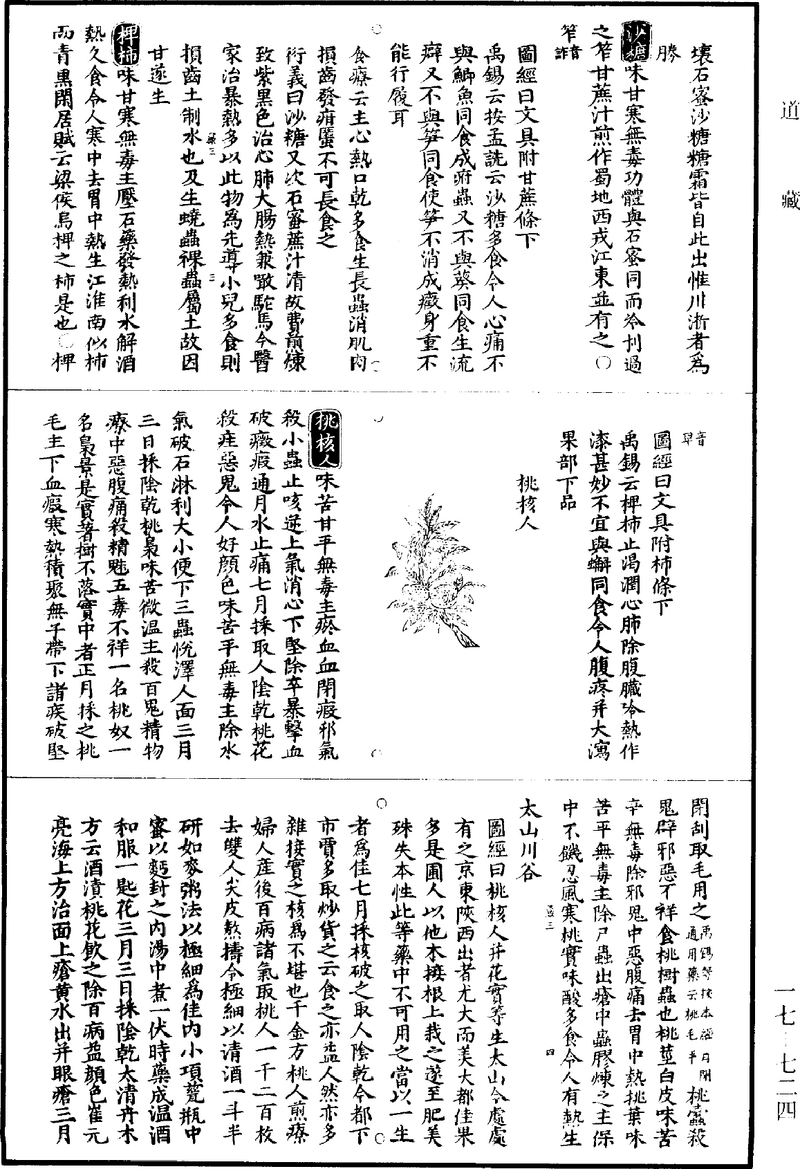 道藏
壞石蜜沙糖糖霜皆自此出惟川淅者為
勝
沙糖味甘寒無毒功體與石蜜同而冷利過
之笮甘蔗汁煎作蜀地西戎江東並有之〇
笮音詐
圖經曰文具附甘蔗條下
禹錫云按孟詵云沙糖多食令人心痛不
與鯽魚同食成疳蟲又不與葵同食生流
澼又不與笋同食使笋不消成癥身重不
能行履耳
食療云主心熱口乾多食生長蟲消肌肉
損齒發疳䘌不可長食之
衍義曰沙糖又次石蜜蔗汁清故費煎煉
致紫黑色治心肺大腸熱兼啖駝馬今醫
家治暴熱多以此物為先導小兒多食則
損齒土制水也及生蟯蟲裸蟲屬土故因
甘遂生
椑柿味甘寒無毒主壓石藥發熱利水解酒
熱久食令人寒中去胃中熱生江淮南似柿
而青黑閑居賦云梁侯烏椑之柿是也〇椑
音卑
圖經曰文具附柿條下
禹錫云椑柿止渴潤心肺除腹臟冷熱作
漆甚妙不宜與蠏同食令人腹疼并大瀉
果部下品
桃核人
桃核人味苦甘平無毒主瘀血血閉瘕邪氣
殺小蟲止咳逆上氣消心下堅除卒暴擊血
破癥瘕通月水止痛七月採取人陰乾桃花
殺疰惡鬼令人好顏色味苦平無毒主除水
氣破石淋利大小便下三蟲悅澤人面三月
三日採陰乾桃梟味苦微溫主殺百鬼精物
療中惡腹痛殺精魅五毒不祥一名桃奴一
名梟景是實著樹不落實中者正月採之桃
毛主下血瘕寒熱積聚無子帶下諸疾破堅
閉刮取毛用之禹錫等按本經月閉通用藥云桃毛平桃蠹殺
鬼辟邪惡不祥食桃樹蟲也桃莖白皮味苦
辛無毒除邪鬼中惡腹痛去胃中熱桃葉味
苦平無毒主除尸蟲出瘡中蟲膠煉之主保
中不饑忍風寒桃實味酸多食令人有熱生
太山川谷
圖經曰桃核人并花實等生太山今處處
有之京東陝西出者尤大而美大都佳果
多是圃人以他木接根上栽之遂至肥美
殊失本性此等藥中不可用之當以一生
者為佳七月採核破之取人陰乾今都下
市賈多取炒貨之云食之亦益人然亦多
雜接實之核為不堪也千金方桃人煎療
婦人產後百病諸氣取桃人一千二百枚
去雙人尖皮熬擣令極細以清酒一斗半
研如麥粥法以極細為佳內小項甆瓶中
蜜以麪封之內湯中煮一伏時藥成溫酒
和服一匙花三月三日採陰乾太清卉木
方云酒漬桃花飲之除百病益顏色崔元
亮海上方治面上瘡黃水出并眼瘡三月
一七－七二四